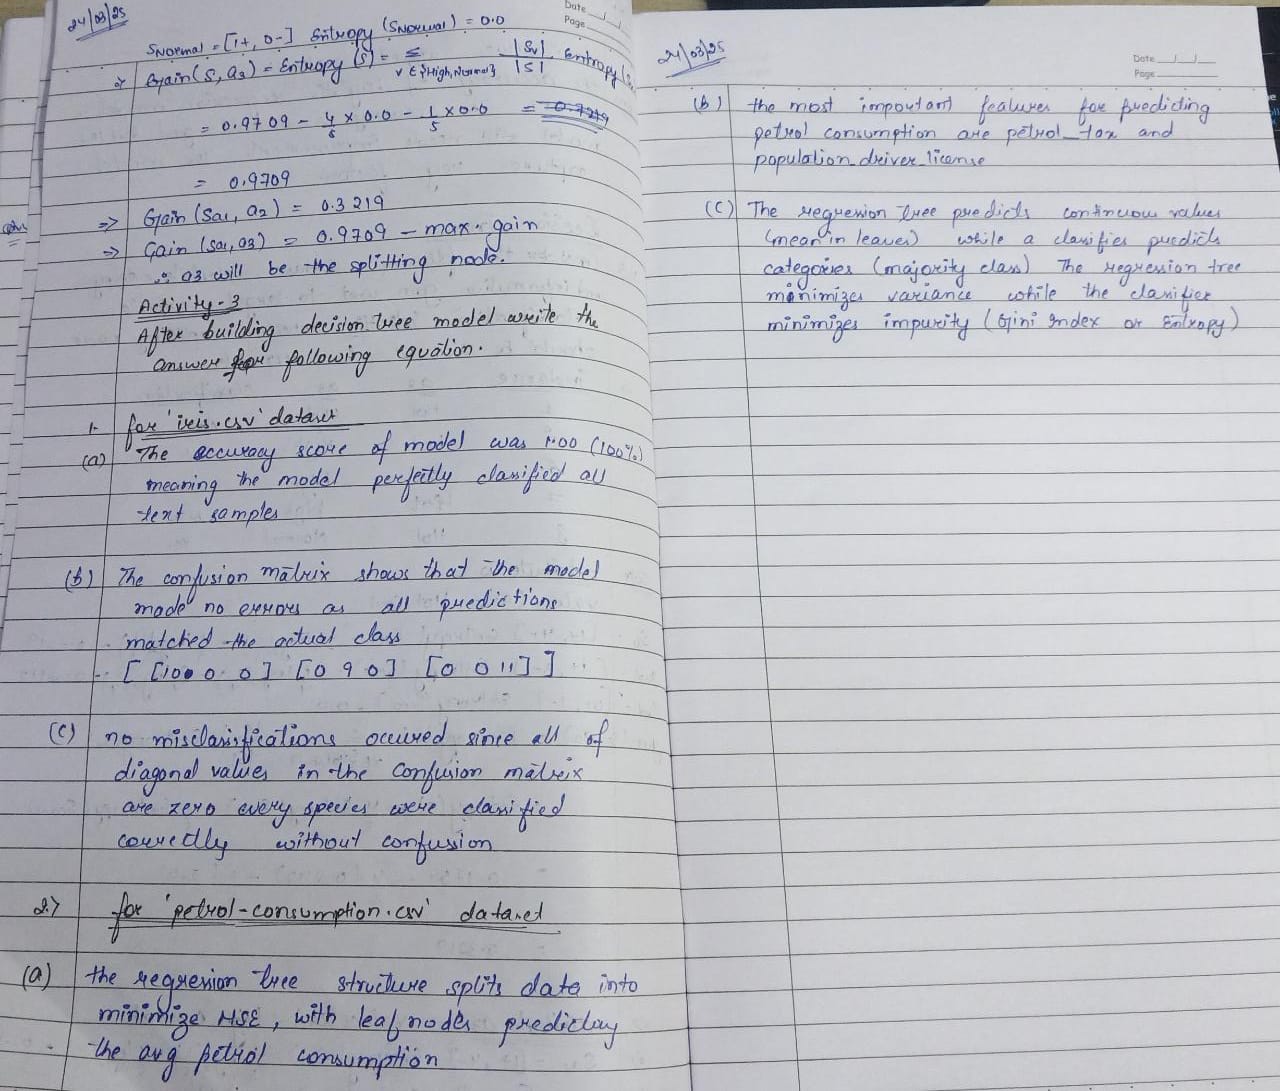 24/03/25
Date
Page
SNormal = [1+, 0-] Entropy (SNormal) = 0.0
Gain(S, a3) = Entropy (S) - Σ v∈{High,Normal} |Sv| / |S| Entropy (S
= 0.9709 - 4/5 x 0.0 - 1/5 x 0.0 = 0.7219
= 0.9709
=> Gain (Sa1, a2) = 0.3219
=> Gain (Sa1, a3) = 0.9709 - max. gain
∴ a3 will be the splitting node.
Activity - 3
After building decision tree model write the
answer for following equation.
1. for 'iris.csv' dataset
(a) The accuracy score of model was 1.00 (100%)
meaning the model perfectly clasified all
text samples
(b) The confusion matrix shows that the model
made no errors as all predictions
matched the actual class
[ [10 0 0] [0 9 0] [0 0 11] ]
(c) no misclasifications occured since all of
diagonal values in the Confusion matrix
are zero every species were clasified
correctly without confussion
2.> for 'petrol-consumption.csv' dataset
(a) the regression tree structure splits data into
minimize MSE, with leaf nodes predicting
the avg petrol consumption
24/03/25
Date
Page
(b) the most important features for predicting
petrol consumption are petrol_tax and
population_driver_license
(c) The regression tree predicts continuous values
(mean in leaves) while a classifier predicts
categories (majority class) The regression tree
minimizes variance while the classifier
minimizes impurity (Gini Index or Entropy)